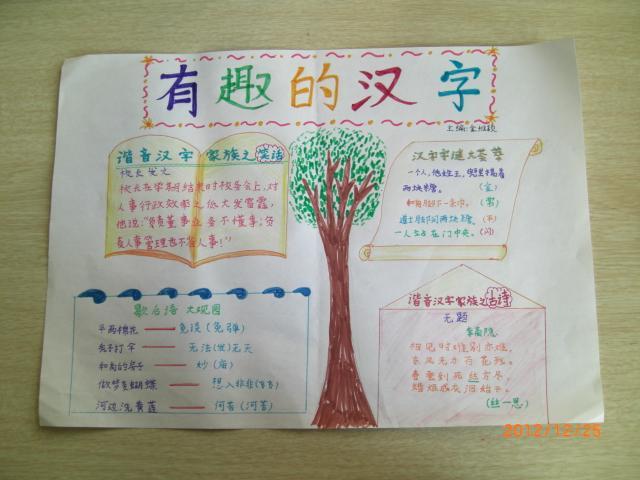 有趣的汉字
主编:金
谐音汉字家族之笑话
校长发之
校长在学期结束时校务会上,对
人事行政效率之低大发雷霆,
他说:"负责董事业务不懂事,负
责人事管理也不省人事!"
歇后语 大观园
平两棉花——免谈(免弹)
和打字——无法(发)无天
和尚的房子——妙(庙)
做梦变蝴蝶——想入非非(飞飞)
河边洗黄莲——何苦(河苦)
汉字字谜大荟萃
一个人,他姓王,兜里揣着
两块糖。(金)
(胃)
道士腰间两块糖。(平)
一人站在门中央。(闪)
谐音汉字家族之古诗
无题
李商隐
相见时难别亦难,
东风无力百花残。
春蚕到死丝方尽,
蜡炬成灰泪始干。
(丝一思)
2012/12/25